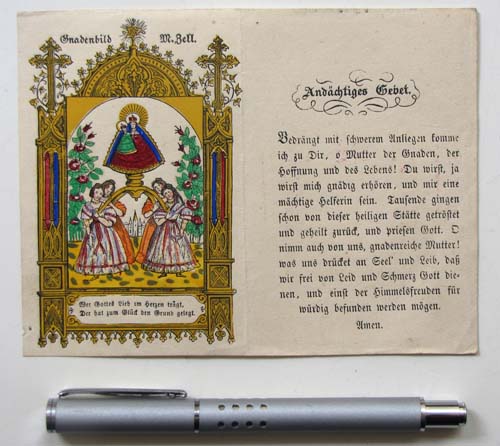 Gnadenbild M. Zell.
Wer Gottes Lieb im Herzen trägt,
Der hat zum Glück den Grund gelegt.
Andächtiges Gebet.
Bedrängt mit schwerem Anliegen komme
ich zu Dir, o Mutter der Gnaden, der
Hoffnung und des Lebens! Du wirst, ja
wirst mich gnädig erhören, und mir eine
mächtige Helferin sein. Tausende gingen
schon von dieser heiligen Stätte getröstet
und geheilt zurück, und priesen Gott. O
nimm auch von uns, gnadenreiche Mutter!
was uns drücket an Seel' und Leib, daß
wir frei von Leid und Schmerz Gott die-
nen, und einst der Himmelsfreuden für
würdig befunden werden mögen.
Amen.